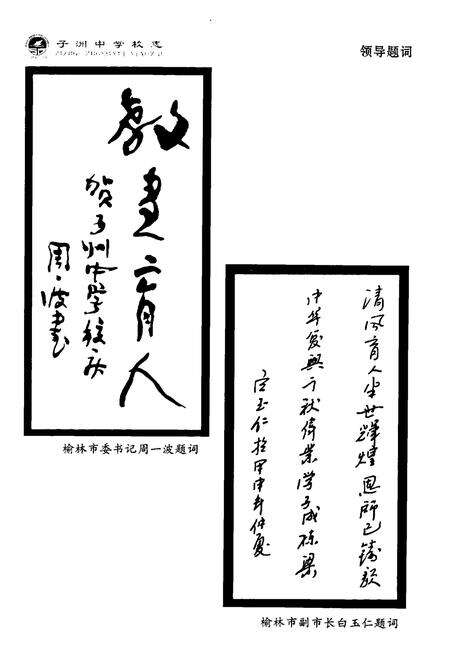 子洲中学校志
领导题词
教書育人
贺子洲中学校庆
周一波书
榆林市委书记周一波题词
清风育人半世輝煌恩師已鑄就
中华复興千秋偉業学子成栋梁
白玉仁於甲申年仲夏
榆林市副市长白玉仁题词